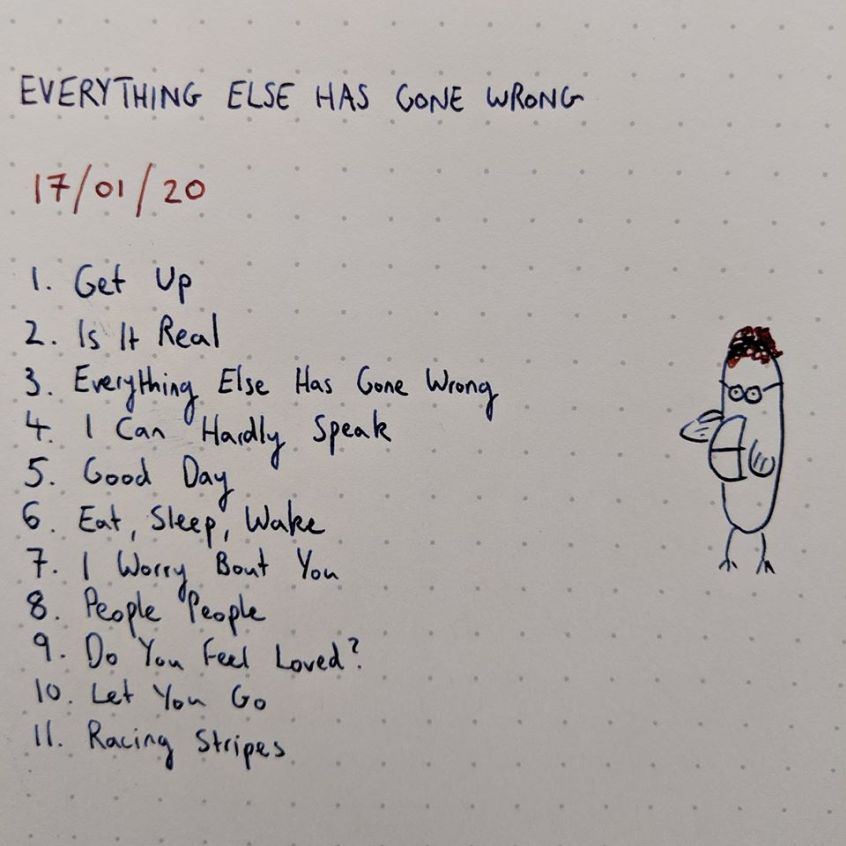 EVERYTHING ELSE HAS GONE WRONG
17/01/20
1. Get Up
2. Is It Real
3. Everything Else Has Gone Wrong
4. I Can Hardly Speak
5. Good Day
6. Eat, Sleep, Wake
7. I Worry Bout You
8. People People
9. Do You Feel Loved?
10. Let You Go
11. Racing Stripes